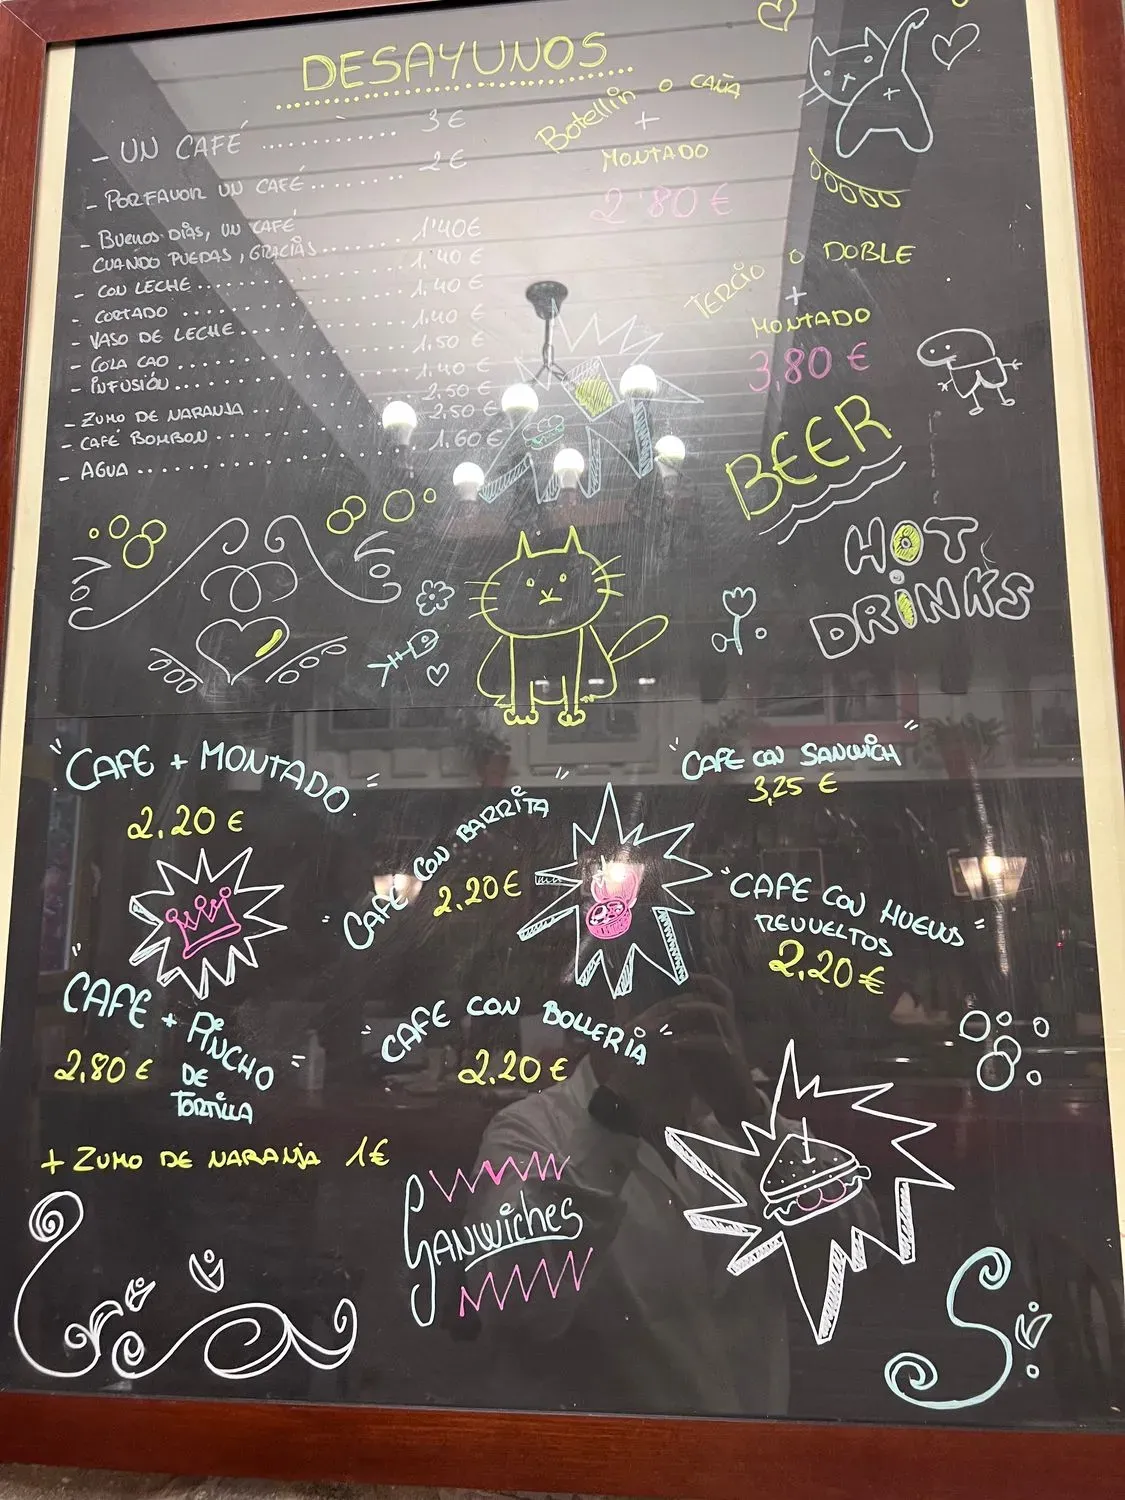 DESAYUNOS
- UN CAFÉ .............. 3 €
- POR FAVOR UN CAFÉ ........ 2 €
- BUENOS DÍAS, UN CAFÉ
CUANDO PUEDAS, GRACIAS ... 1'40 €
- CON LECHE ............ 1.40 €
- CORTADO ............ 1.40 €
- VASO DE LECHE ............ 1.40 €
- COLA CAO ............ 1.50 €
- INFUSIÓN ............ 1.40 €
- ZUMO DE NARANJA ............ 2.50 €
- CAFÉ BOMBON ............ 2.50 €
- AGUA ............ 1.60 €
Botellin o CAÑA
+
MONTADO
2'80 €
TERCIO o DOBLE
+
MONTADO
3,80 €
BEER
HOT
DRiNKS
"CAFE + MONTADO"
2.20 €
"CAFE CON BARRITA"
2.20 €
"CAFE CON SANWICH"
3,25 €
"CAFE CON HUEVOS
REVUELTOS"
2,20 €
"CAFE + PINCHO
DE
TORTILLA"
2.80 €
"CAFE CON BOLLERIA"
2.20 €
+ ZUMO DE NARANJA 1 €
SANWICHES